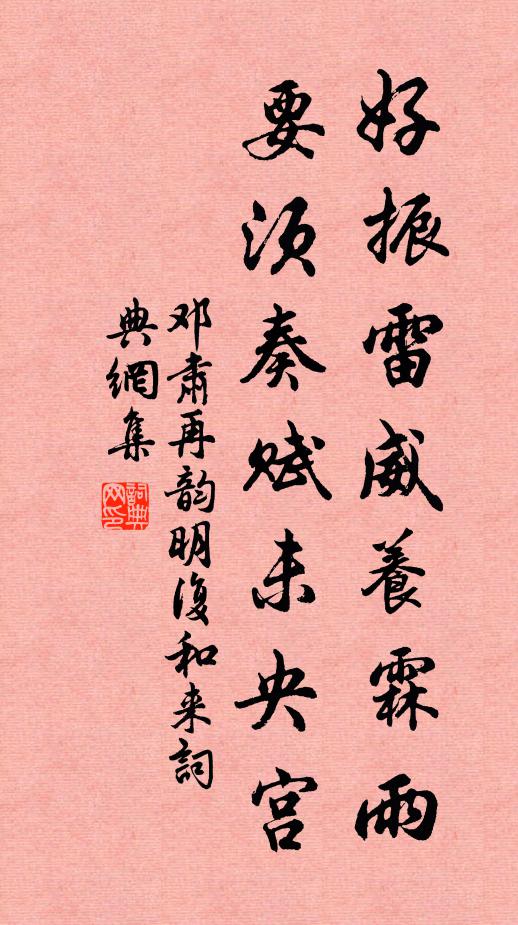 好振雷威養霖雨
要须奏赋未央宫
邓肃再韵明復和来詞
典網集
詞典网印